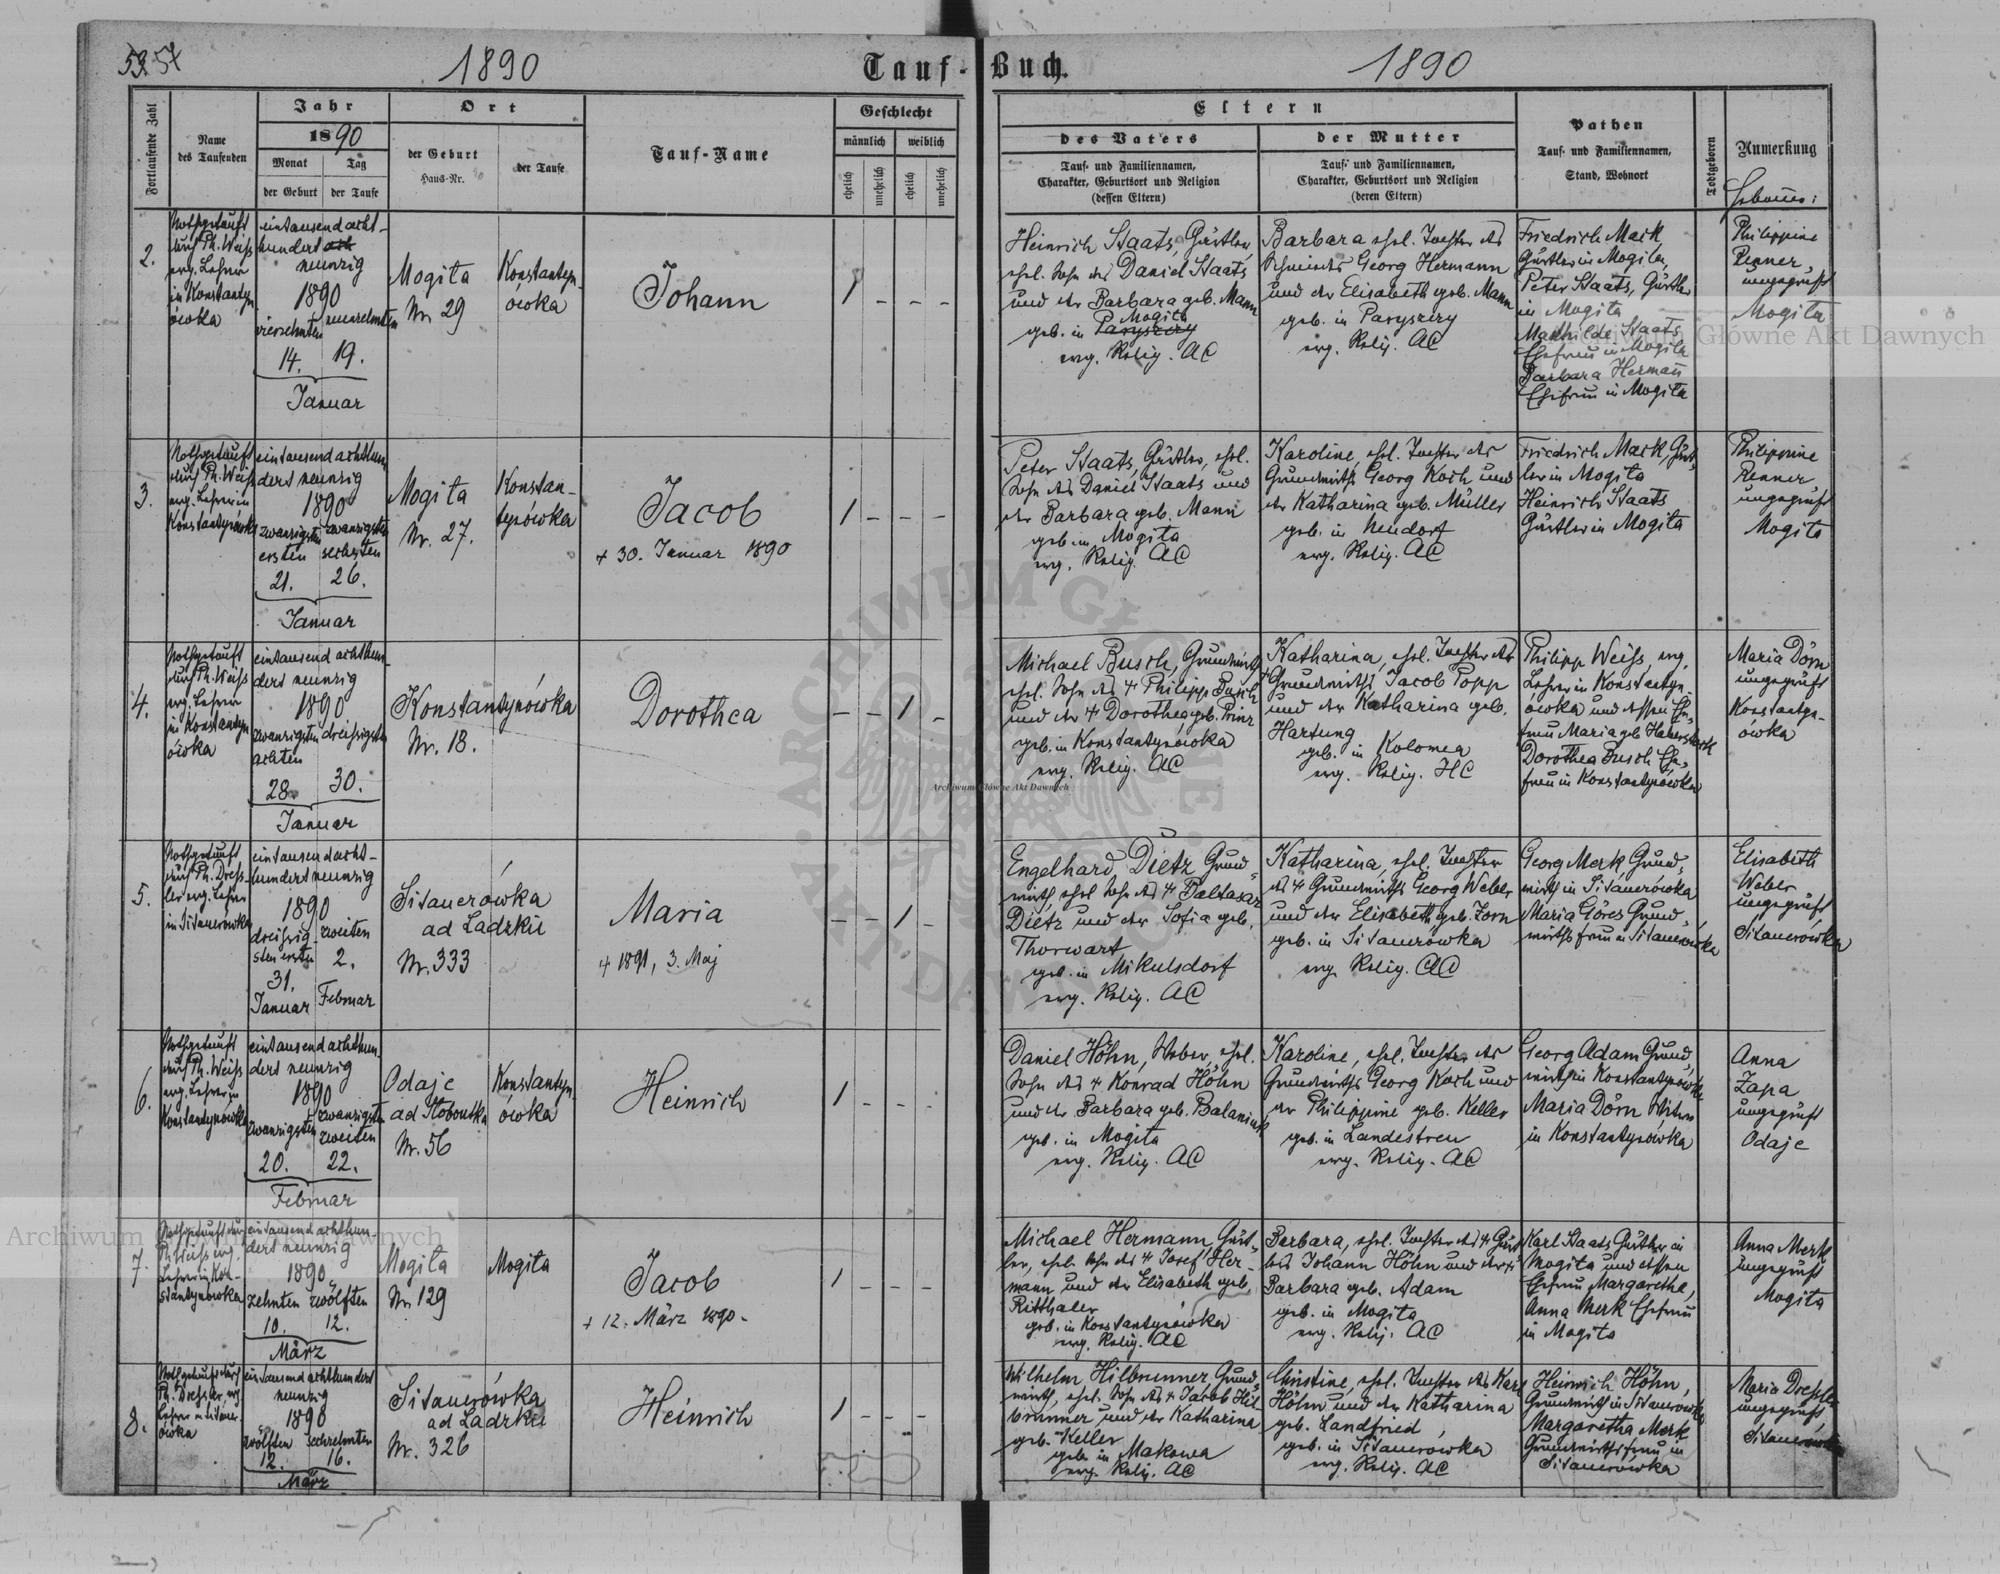 53 57
1890
Tauf-
Buch.
1890
Fortlaufende Zahl
Name
des Taufenden
Jahr
1890
Monat
Tag
der Geburt
der Taufe
Ort
der Geburt
Haus-Nr.
der Taufe
Tauf-Name
Geschlecht
männlich
weiblich
ehelich
unehelich
ehelich
unehelich
Eltern
des Vaters
Tauf- und Familiennamen,
Charakter, Geburtsort und Religion
(dessen Eltern)
der Mutter
Tauf- und Familiennamen,
Charakter, Geburtsort und Religion
(deren Eltern)
Pathen
Tauf- und Familiennamen,
Stand, Wohnort
Todtgeboren
Anmerkung
2.
Nothgetauft
durch Ph. Weiss
evg. Lehrer
in Konstantyn
ówka
eintausend acht-
hundert
neunzig
1890
vierzehnten
neunzehnten
14. 19.
Januar
Mogila
Nr. 29
Konstantyn
ówka
Johann
1 - - -
Heinrich Staats, Gärtler,
ehel. Sohn des Daniel Staats
und der Barbara geb. Mann
Mogila
geb. in Paryszczy
evg. Relig. AC
Barbara ehel. Tochter des
Schmieds Georg Hermann
und der Elisabeth geb. Mann
geb. in Paryszczy
evg. Relig. AC
Friedrich Mark
Gärtler in Mogila,
Peter Staats, Gärtler
in Mogila
Mathilde Staats
Ehefrau in Mogila
Barbara Hermann
Ehefrau in Mogila
Philippine
Renner
ungeprüft
Mogila
3.
Nothgetauft
durch Ph. Weiss
evg. Lehrer in
Konstantynówka
eintausend achthun
dert neunzig
1890
zwanzigsten zwanzigsten
ersten sechsten
21. 26.
Januar
Mogila
Nr. 27.
Konstan-
tynówka
Jacob
+ 30. Januar 1890
1 - - -
Peter Staats, Gärtler, ehel.
Sohn des Daniel Staats und
der Barbara geb. Mann
geb. in Mogila
evg. Relig. AC
Karoline, ehel. Tochter des
Grundwirths Georg Koch und
der Katharina geb. Müller
geb. in Neudorf
evg. Relig. AC
Friedrich Mark, Gärt-
ler in Mogila
Heinrich Staats
Gärtler in Mogila
Philippine
Renner
ungeprüft
Mogila
4.
Nothgetauft
durch Ph. Weiss
evg. Lehrer
in Konstantyn
ówka
eintausend achthun-
dert neunzig
1890
zwanzigsten dreissigsten
achten
28. 30.
Januar
Konstantynówka
Nr. 18.
Dorothea
- - 1 -
Michael Busch, Grundwirth
ehel. Sohn des + Philipp Busch
und der + Dorothea geb. Prinz
geb. in Konstantynówka
evg. Relig. AC
Katharina, ehel. Tochter des
Grundwirths Jacob Popp
und der Katharina geb.
Hartung
geb. in Kolomea
evg. Relig. HC
Philipp Weiss, evg.
Lehrer in Konstantyn-
ówka und dessen Ehe-
frau Maria geb. Haberstock
Dorothea Busch Ehe-
frau in Konstantynówka
Maria Dörn
ungeprüft
Konstantyn-
ówka
5.
Nothgetauft
durch Ph. Dress-
ler evg. Lehrer
in Sitauerówka
eintausend acht-
hundert neunzig
1890
dreissig- zweiten
sten ersten 2.
31.
Januar Februar
Sitauerówka
ad Ladzkie
Nr. 333
Maria
+ 1891, 3. Maj
- - 1 -
Engelhard Dietz Grund-
wirth, ehel. Sohn des + Baltasar
Dietz und der Sofia geb.
Thorwart
geb. in Mikulsdorf
evg. Relig. AC
Katharina, ehel. Tochter
des + Grundwirths Georg Weber
und der Elisabeth geb. Zorn
geb. in Sitauerówka
evg. Relig. AC
Georg Merk, Grund-
wirth in Sitauerówka
Maria Göres Grund-
wirthsfrau in Sitauerówka
Elisabeth
Weber
ungeprüft
Sitauerówka
6.
Nothgetauft
durch Ph. Weiss
evg. Lehrer in
Konstantynówka
eintausend achthun-
dert neunzig
1890
zwanzigsten zwanzigsten
zweiten
20. 22.
Februar
Odaje
ad Slobudka
Nr. 56
Konstantyn
ówka
Heinrich
1 - - -
Daniel Höhn, Weber, ehel.
Sohn des + Konrad Höhn
und der Barbara geb. Balaniuk
geb. in Mogila
evg. Relig. AC
Karoline, ehel. Tochter des
Grundwirths Georg Koch und
der Philippine geb. Keller
geb. in Landestreu
evg. Relig. AC
Georg Adam Grund-
wirth in Konstantynówka
Maria Dörn Witwe
in Konstantynówka
Anna
Zapa
ungeprüft
Odaje
7.
Nothgetauft durch
Ph. Weiss evg.
Lehrer in Kon-
stantynówka
eintausend achthun-
dert neunzig
1890
zehnten zwölften
10. 12.
März
Mogila
Nr. 129
Mogila
Jacob
+ 12. März 1890.
1 - - -
Michael Hermann, Gärt-
ler, ehel. Sohn des + Josef Her-
mann und der Elisabeth geb.
Ritthaler
geb. in Konstantynówka
evg. Relig. AC
Barbara, ehel. Tochter des + Gärt
lers Johann Höhn und der +
Barbara geb. Adam
geb. in Mogila
evg. Relig. AC
Karl Staats Gärtler in
Mogila und dessen
Ehefrau Margarethe,
Anna Merk Ehefrau
in Mogila
Anna Merk
ungeprüft
Mogila
8.
Nothgetauft durch
Ph. Dressler, evg.
Lehrer in Sitauer-
ówka
eintausend achthundert
neunzig
1890
zwölften sechzehnten
12. 16.
März
Sitauerówka
ad Ladzkie
Nr. 326
Heinrich
1 - - -
Wilhelm Hilbrunner, Grund-
wirth, ehel. Sohn des + Jacob Hil
brunner und der Katharina
geb. Keller
geb. in Makowa
evg. Relig. AC
Christine, ehel. Tochter des Karl
Höhn und der Katharina
geb. Landfried,
geb. in Sitauerówka
evg. Relig. AC
Heinrich Höhn,
Grundwirth in Sitauerówka
Margaretha Merk
Grundwirthsfrau in
Sitauerówka
Maria Dressler
ungeprüft,
Sitauerówka
Archiwum Główne Akt Dawnych